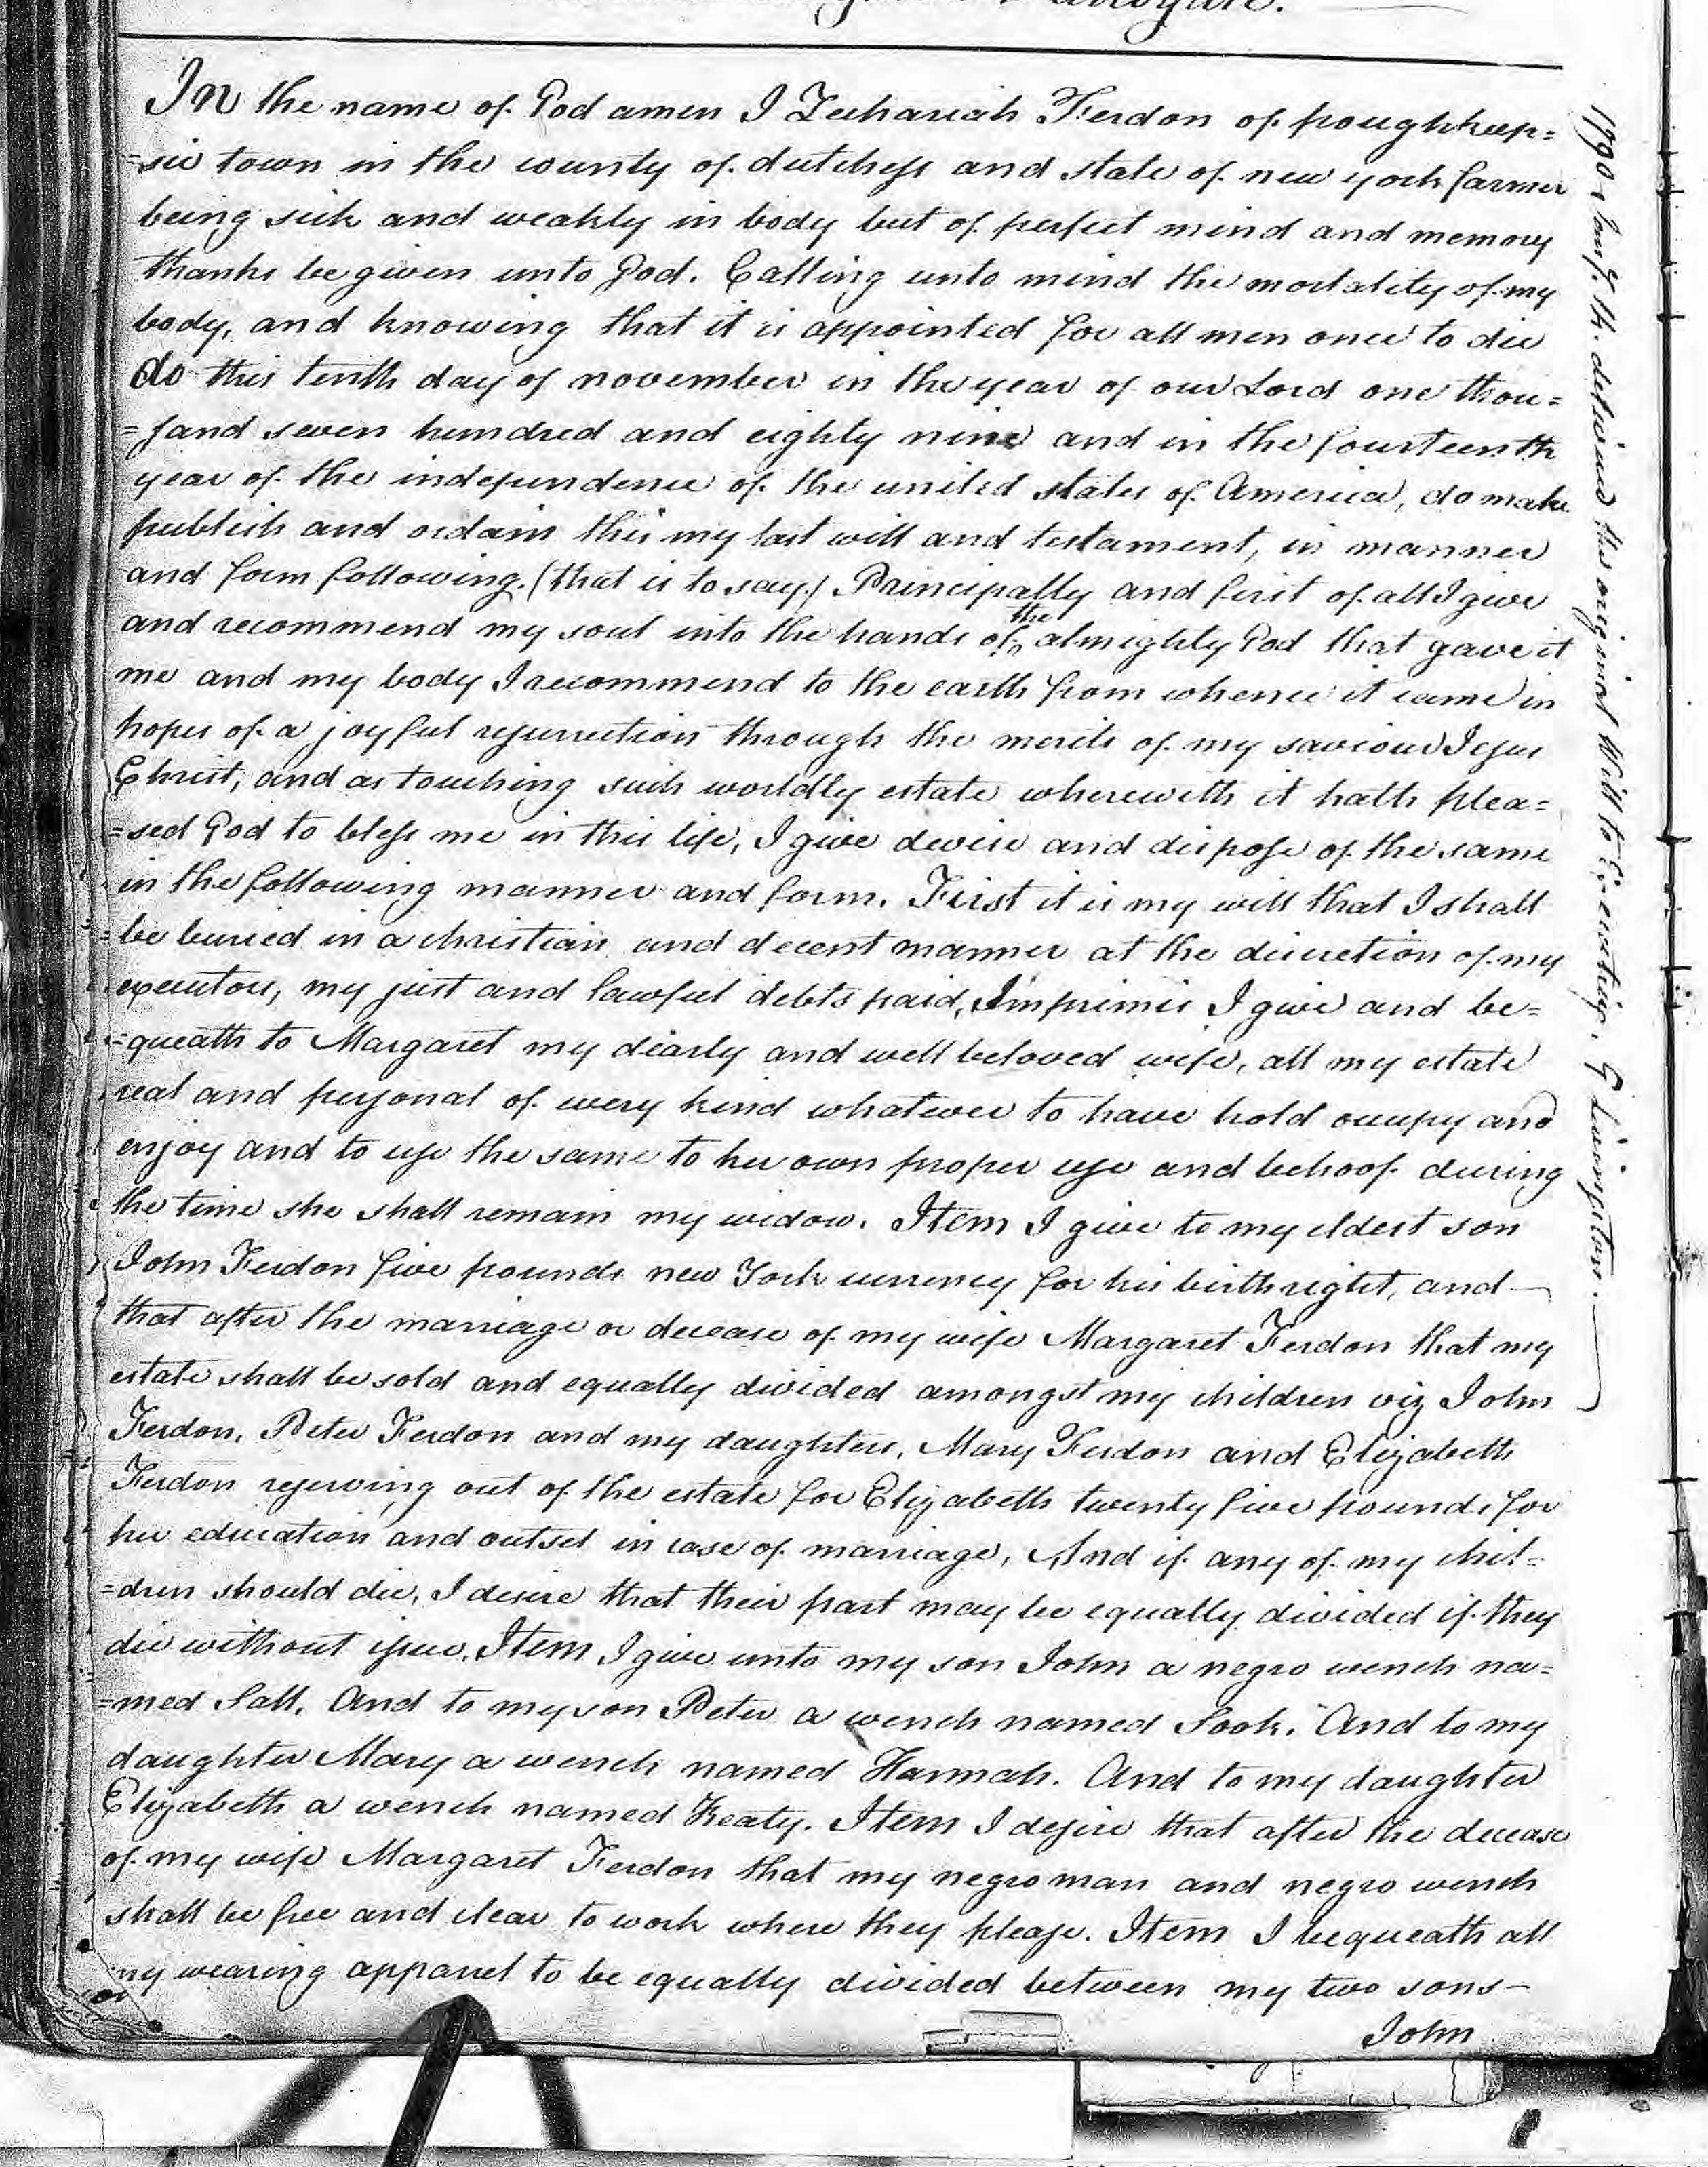 In the name of God amen I Zechariah Ferdon of poughkeep=
=sie town in the county of dutchess and state of new york farmer
being sick and weakly in body but of perfect mind and memory
thanks be given unto God. Calling unto mind the mortality of my
body, and knowing that it is appointed for all men once to die
do this tenth day of november in the year of our Lord one thou=
=sand seven hundred and eighty nine and in the fourteenth
year of the independence of the united states of America, do make
publish and ordain this my last will and testament, in manner
and form following. (that is to say) Principally and first of all I give
and recommend my soul into the hands of the almighty God that gave it
me and my body I recommend to the earth from whence it came in
hopes of a joyful resurrection through the merits of my saviour Jesus
Christ, and as touching such worldly estate wherewith it hath plea=
=sed God to bless me in this life, I give devise and dispose of the same
in the following manner and form. First it is my will that I shall
be buried in a christian and decent manner at the discretion of my
executors, my just and lawful debts paid, Imprimis I give and be=
=queath to Margaret my dearly and well beloved wife, all my estate
real and personal of every kind whatever to have hold occupy and
enjoy and to use the same to her own proper use and behoof during
the time she shall remain my widow. Item I give to my eldest son
John Ferdon five pounds new York currency for his birthright, and
that after the marriage or decease of my wife Margaret Ferdon that my
estate shall be sold and equally divided amongst my children viz John
Ferdon, Peter Ferdon and my daughters, Mary Ferdon and Elizabeth
Ferdon reserving out of the estate for Elizabeth twenty five pounds for
her education and outset in case of marriage, And if any of my chil=
=dren should die, I desire that their part may be equally divided if they
die without issue. Item I give unto my son John a negro wench na=
=med Sall. And to my son Peter a wench named Sook. And to my
daughter Mary a wench named Hannah. And to my daughter
Elizabeth a wench named Keaty. Item I desire that after the decease
of my wife Margaret Ferdon that my negro man and negro wench
shall be free and clear to work where they please. Item I bequeath all
my wearing apparel to be equally divided between my two sons
John
1790 delivered this original Will to Executrix. G Livingston.